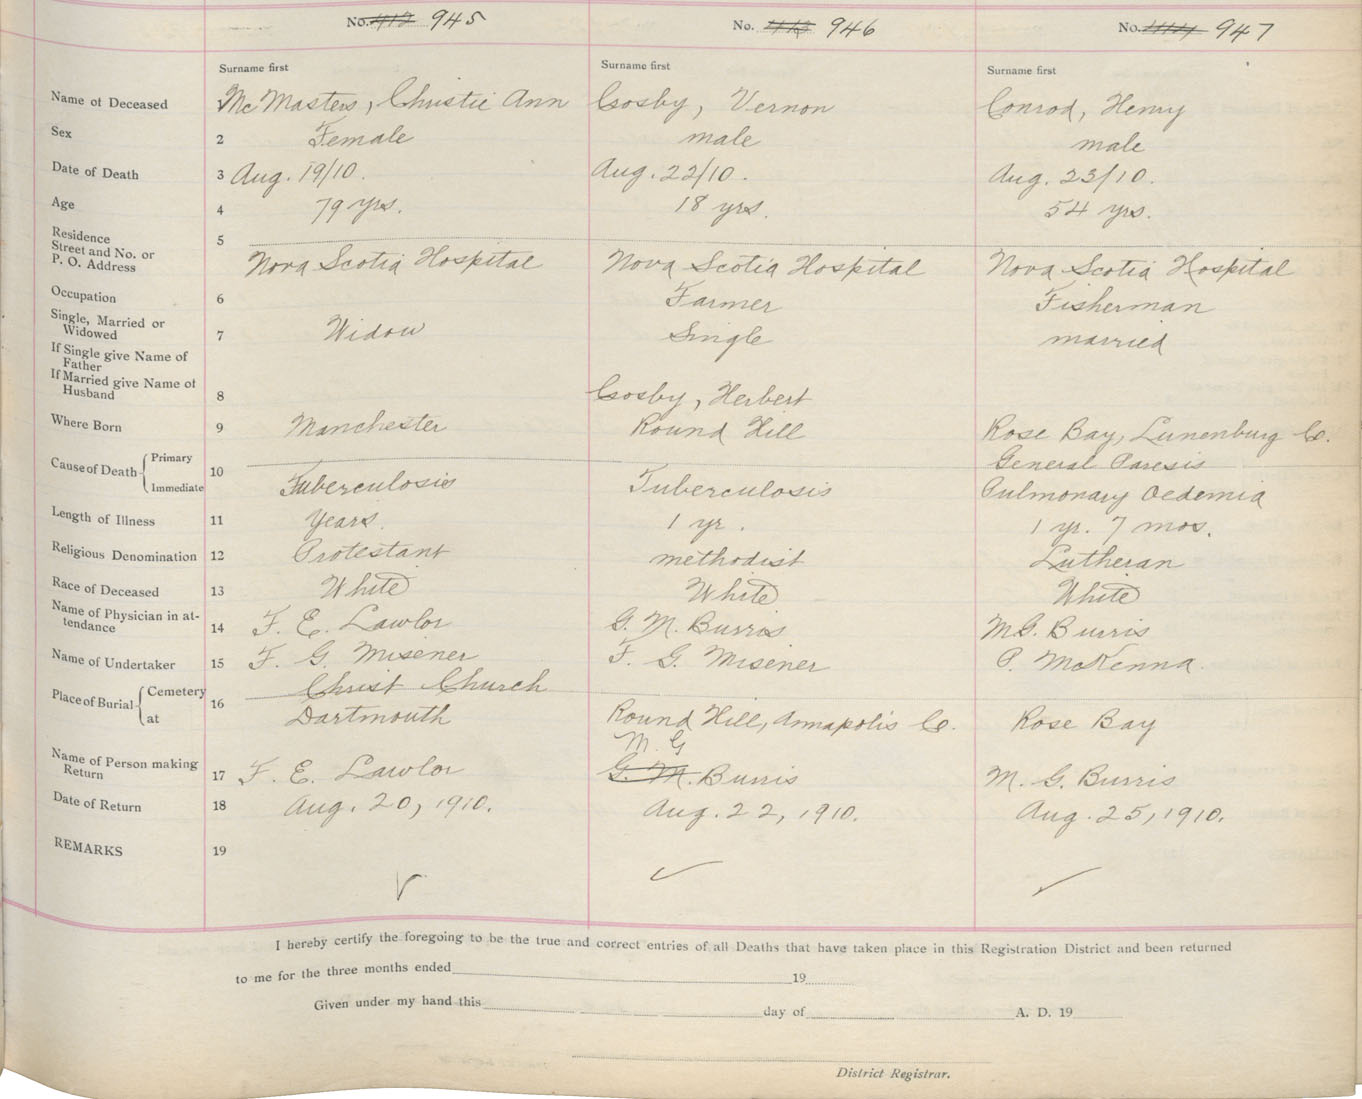 No. 412 945 No. 413 946 No. 414 947
Surname first Surname first Surname first
Name of Deceased McMasters, Christie Ann Cosby, Vernon Conrod, Henry
Sex 2 Female male male
Date of Death 3 Aug. 19/10. Aug. 22/10. Aug. 23/10.
Age 4 79 yrs. 18 yrs. 54 yrs.
Residence
Street and No. or
P. O. Address 5 Nova Scotia Hospital Nova Scotia Hospital Nova Scotia Hospital
Occupation 6 Farmer Fisherman
Single, Married or
Widowed 7 Widow Single married
If Single give Name of
Father
If Married give Name of
Husband 8 Cosby, Herbert
Where Born 9 Manchester Round Hill Rose Bay, Lunenburg Co.
Cause of Death Primary 10 General Paresis
Immediate Tuberculosis Tuberculosis Pulmonary Oedemia
Length of Illness 11 Years. 1 yr. 1 yr. 7 mos.
Religious Denomination 12 Protestant methodist Lutheran
Race of Deceased 13 White White White
Name of Physician in at-
tendance 14 F. E. Lawlor G. M. Burris M.G. Burris
Name of Undertaker 15 F. G. Misener F. G. Misener P. McKenna.
Place of Burial Cemetery 16 Christ Church
at Dartmouth Round Hill, Annapolis Co. Rose Bay
M. G
Name of Person making
Return 17 F. E. Lawlor G. M. Burris M. G. Burris
Date of Return 18 Aug. 20, 1910. Aug. 22, 1910. Aug. 25, 1910.
REMARKS 19
I hereby certify the foregoing to be the true and correct entries of all Deaths that have taken place in this Registration District and been returned
to me for the three months ended 19
Given under my hand this day of A. D. 19
District Registrar.